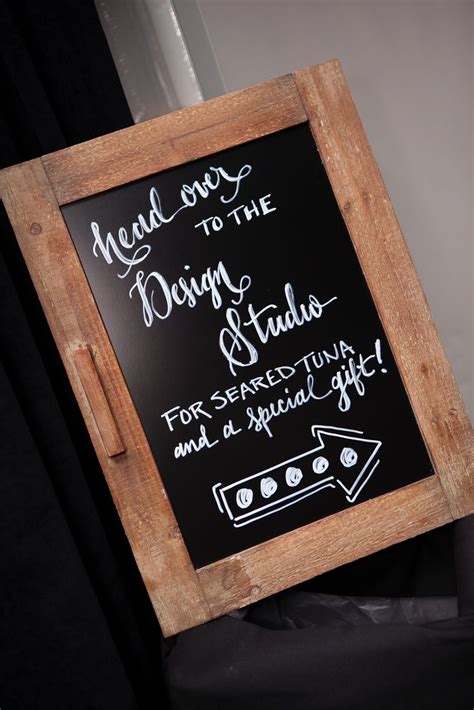 head over
TO THE
Design
Studio
FOR SEARED TUNA
and a special gift!